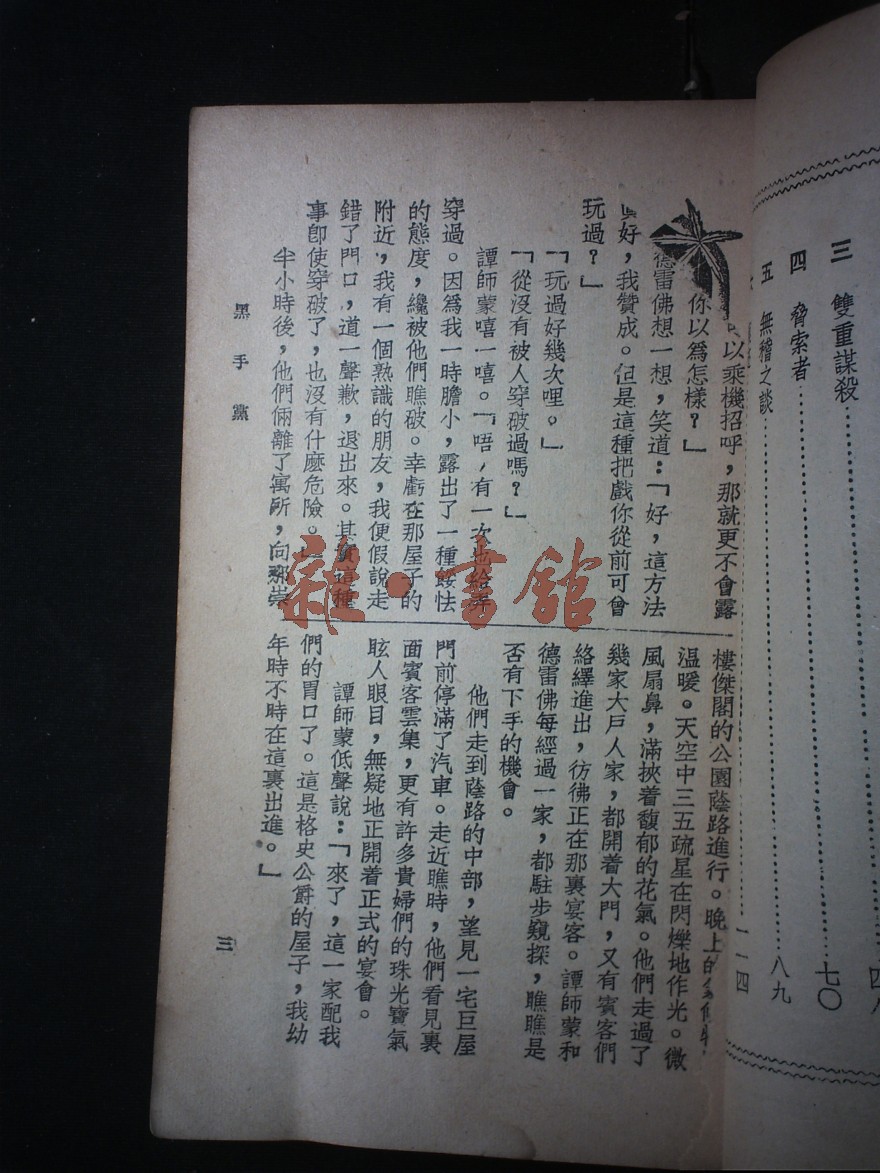 以乘機招呼，那就更不會露
你以爲怎樣？」
德雷佛想一想，笑道：「好，這方法
好，我贊成。但是這種把戲你從前可會
玩過？」
「玩過好幾次哩。」
「從沒有被人穿破過嗎？」
譚師蒙嘻一嘻。「唔，有一次也給弄
穿過。因爲我一時膽小，露出了一種餒怯
的態度，纔被他們瞧破。幸虧在那屋子的
附近，我有一個熟識的朋友，我便假說走
錯了門口，道一聲歉，退出來。其實這種
事卽使穿破了，也沒有什麼危險。」
半小時後，他們倆離了寓所，向那崇
樓傑閣的公園蔭路進行。晚上的
溫暖。天空中三五疏星在閃爍地作光。微
風扇鼻，滿挾着馥郁的花氣。他們走過了
幾家大戶人家，都開着大門，又有賓客們
絡繹進出，彷彿正在那裏宴客。譚師蒙和
德雷佛每經過一家，都駐步窺探，瞧瞧是
否有下手的機會。
他們走到蔭路的中部，望見一宅巨屋
門前停滿了汽車。走近瞧時，他們看見裏
面賓客雲集，更有許多貴婦們的珠光寶氣
眩人眼目，無疑地正開着正式的宴會。
譚師蒙低聲說：「來了，這一家配我
們的胃口了。這是格史公爵的屋子，我幼
年時不時在這裏出進。」
黑手黨
三
三 雙重謀殺
四 脅索者 七〇
五 無稽之談 八九
一一四
雜·書館